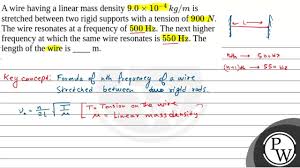 A wire having a linear mass density 9.0 × 10⁻⁴ kg/m is
stretched between two rigid supports with a tension of 900 N.
The wire resonates at a frequency of 500 Hz. The next higher
frequency at which the same wire resonates is 550 Hz. The
length of the wire is ____ m.
L
nth → 500 Hz
(n+1)th → 550 Hz
Key concept: Formula of nth frequency of a wire
Stretched between two rigid rods.
νₙ = n/2L √T/μ [ T = Tension on the wire
μ = linear mass density ]
PW